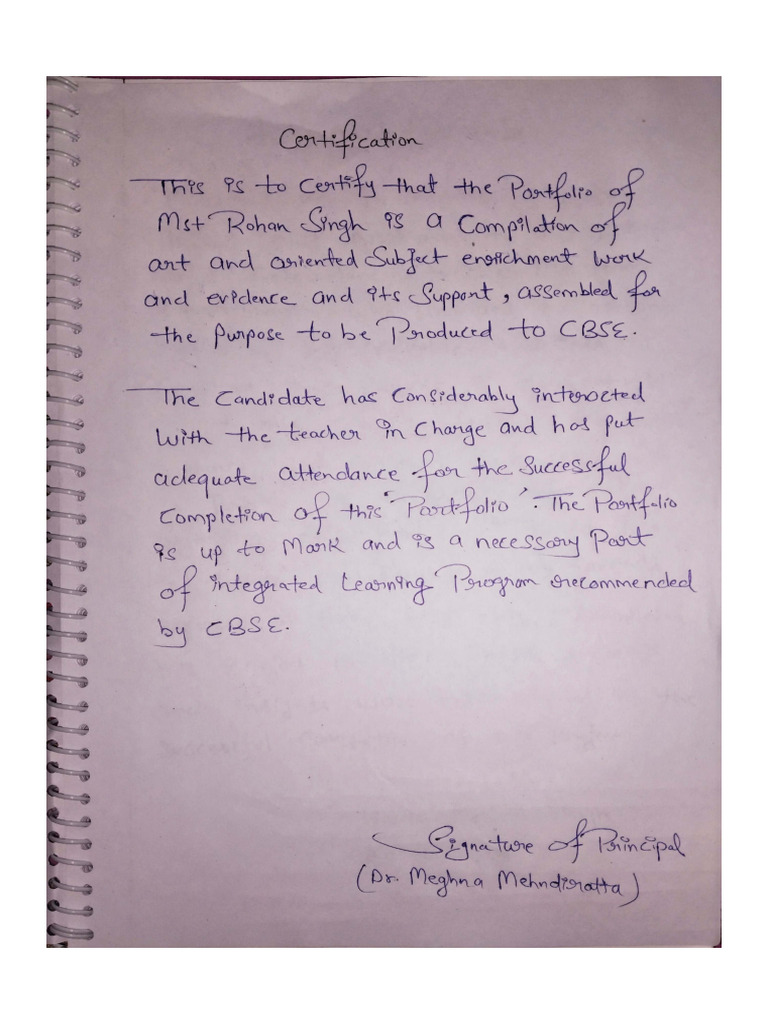 Certification
This is to Certify that the Portfolio of
Mst Rohan Singh is a Compilation of
art and oriented Subject enrichment work
and evidence and its Support, assembled for
the Purpose to be Produced to CBSE.
The Candidate has Considerably interacted
with the teacher in Charge and has put
adequate attendance for the Successful
Completion of this 'Portfolio'. The Portfolio
is up to Mark and is a necessary Part
of integrated Learning Program recommended
by CBSE.
Signature of Principal
(Dr. Meghna Mehndiratta)